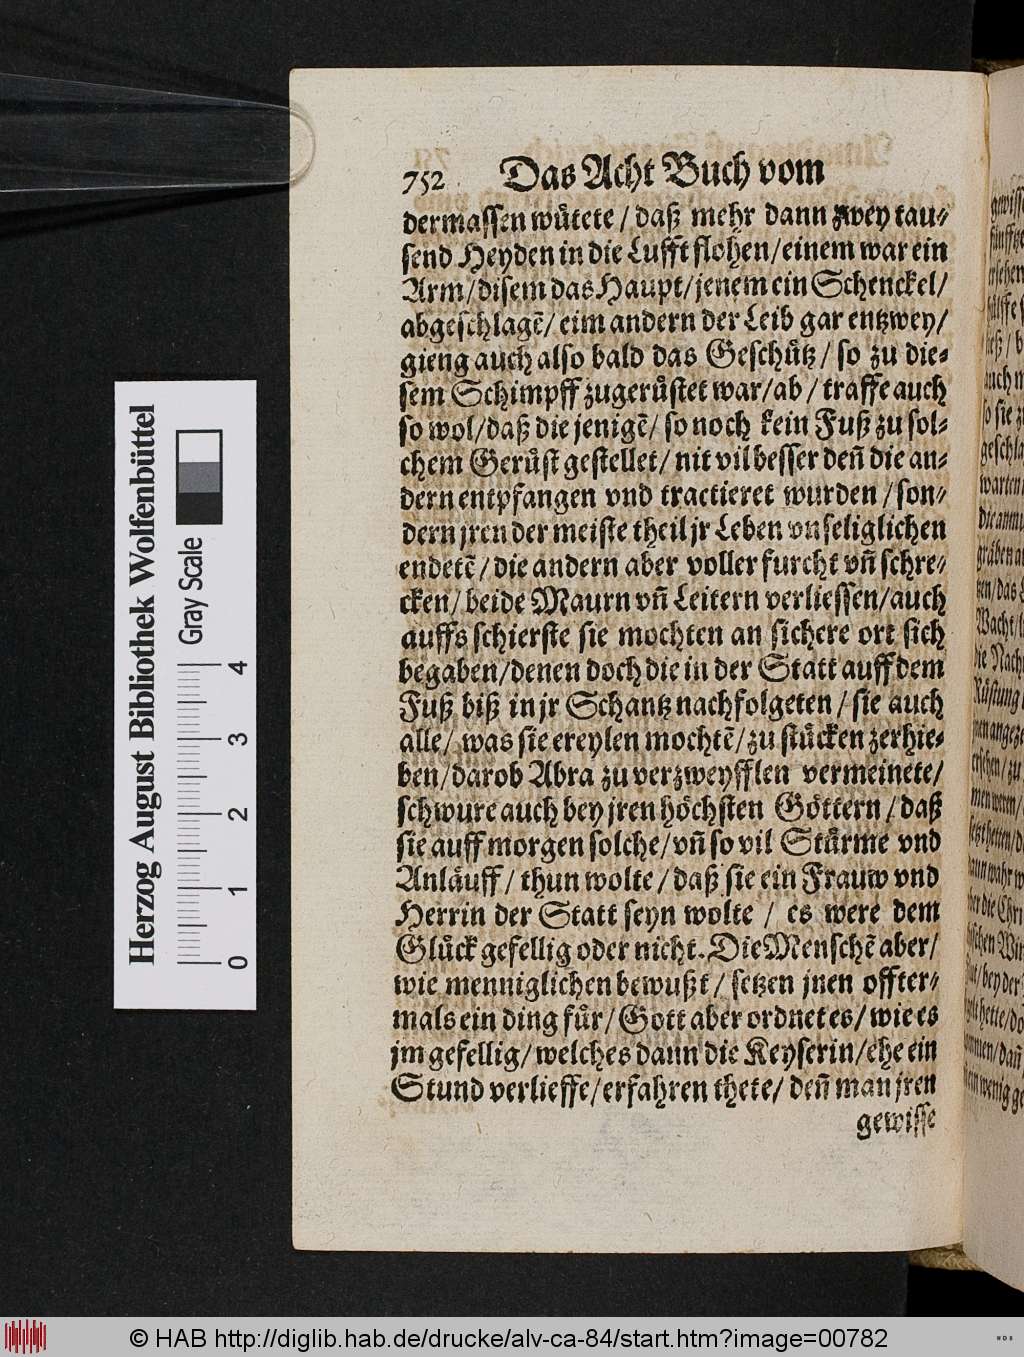 752 Das Acht Buch vom
dermassen wütete / daß mehr dann zwey tau-
send Heyden in die Lufft flohen/einem war ein
Arm/disem das Haupt/jenem ein Schenckel/
abgeschlagẽ/ eim andern der Leib gar entzwey/
gieng auch also bald das Geschütz/ so zu die-
sem Schimpff zugerüstet war/ab / traffe auch
so wol/daß die jenigẽ/ so noch kein Fuß zu sol-
chem Gerüst gestellet/ nit vil besser deñ die an-
dern entpfangen vnd tractieret wurden /son-
dern jren der meiste theil jr Leben vnseliglichen
endetẽ/ die andern aber voller furcht vñ schre-
cken/ beide Maurn vñ Leitern verliessen/auch
auffs schierste sie mochten an sichere ort sich
begaben/denen doch die in der Statt auff dem
Fuß biß in jr Schantz nachfolgeten / sie auch
alle/ was sie ereylen mochtẽ/zu stücken zerhie-
ben/darob Abra zu verzweyfflen vermeinete/
schwure auch bey jren höchsten Göttern / daß
sie auff morgen solche/ vñ so vil Stürme vnd
Anläuff/ thun wolte / daß sie ein Frauw vnd
Herrin der Statt seyn wolte / es were dem
Glück gefellig oder nicht. Die Menschẽ aber/
wie menniglichen bewußt/ setzen jnen offter-
mals ein ding für/ Gott aber ordnet es/ wie es
jm gefellig/ welches dann die Keyserin/ehe ein
Stund verlieffe/erfahren thete/ deñ man jren
gewisse
Herzog August Bibliothek Wolfenbüttel
Gray Scale
0 1 2 3 4
© HAB http://diglib.hab.de/drucke/alv-ca-84/start.htm?image=00782